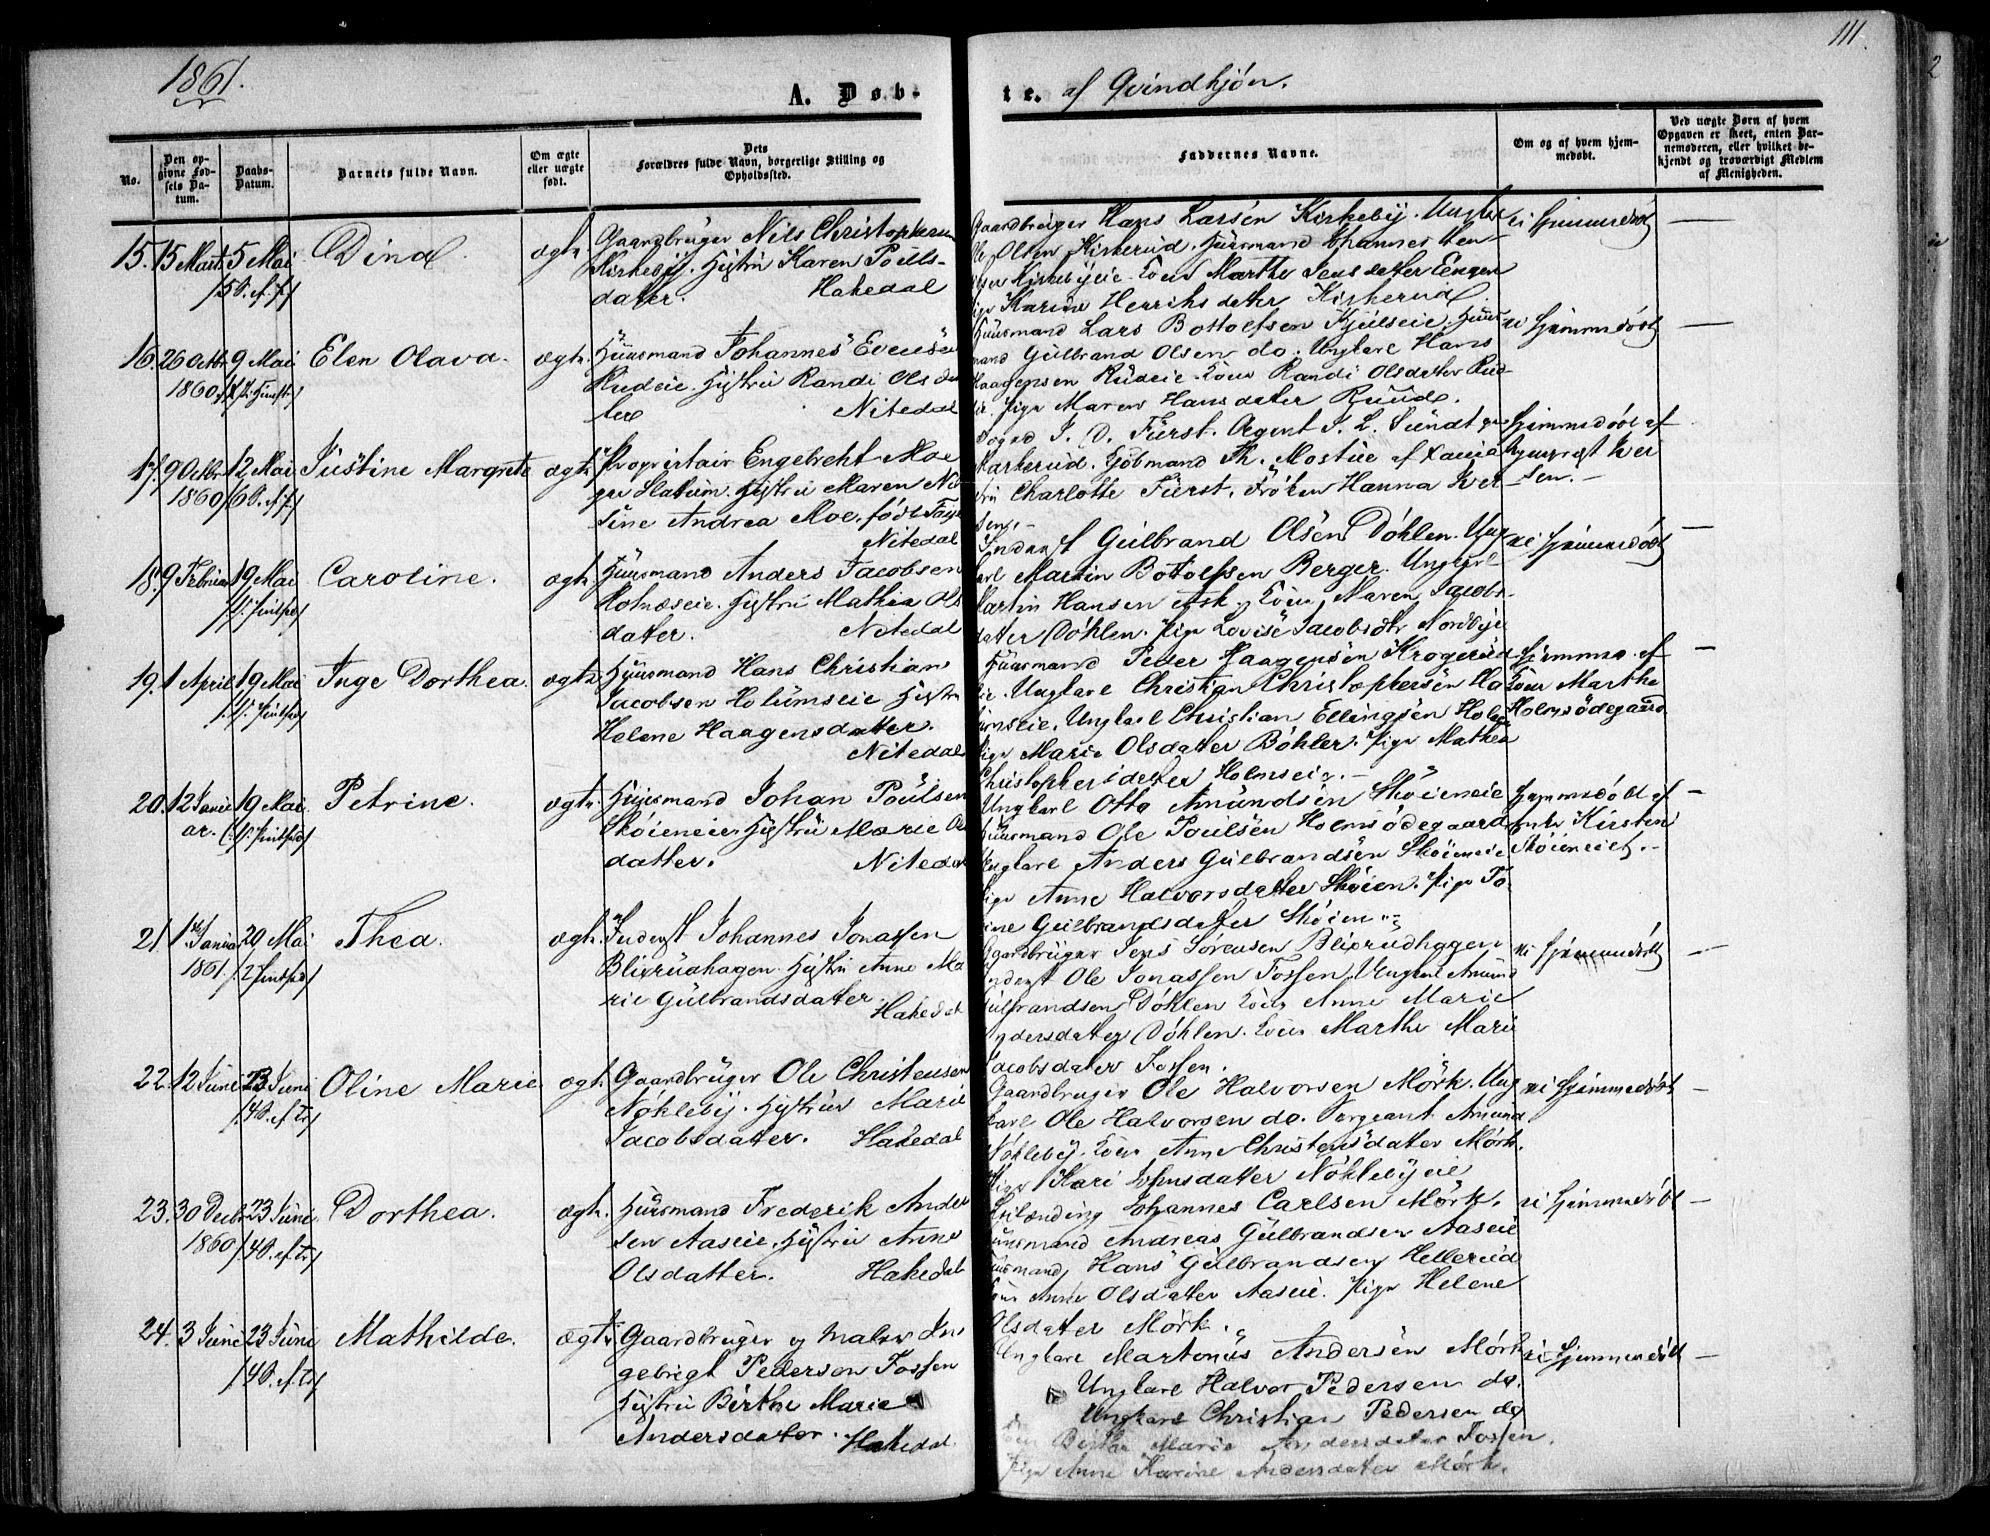 1861.
A. Døb-
te. af Qvindkjøn.
111.
No.
Den op-
givne Fød-
sels Da-
tum.
Daabs-
Datum.
Barnets fulde Navn.
Om ægte
eller uægte
født.
Dets
Forældres fulde Navn, borgerlige Stilling og
Opholdssted.
Faddernes Navne.
Om og af hvem hjem-
medøbt.
Ved uægte Børn af hvem
Opgaven er skeet, enten Bar-
nemoderen, eller hvilket be-
kjendt og troværdigt Medlem
af Menigheden.
15. 15 Marts 5 Mai Dina. ægte.
Gaardbruger Nils Christophersen
Kirkeby. Hustru Karen Pouls-
dater. Hakedal
Gaardbruger Hans Larsen Kirkeby. Ungkar
Ole Olsen Kirkerud. Huusmand Johannes
Kirkebyeie. Kone Marthe Jensdater Engen
Pige Karine Henriksdater Kirkerud.
ei hjemmedøbt
16. 26 Octbr 1860 9 Mai Elen Olava. ægte.
Huusmand Johannes Evensen
Rudeie. Hustru Randi Olsda
ter Nitedal
Huusmand Lars Bottolfsen Kjulseie. Huus
mand Gulbrand Olsen do. Ungkarl Hans
Haagensen Rudeie. Kone Randi Olsdater Rud-
eie. Pige Maren Hansdater Ruud.
ei hjemmedøbt
17. 9 Octbr 1860 12 Mai Justine Margrete ægte.
Proprietair Engebreht Moe
Slatum. Hustru Maren Ni
sine Andrea Moe, født
Nitedal
Foged J. D. Fürst. Agent J. L. Sundt
Markerud. Kjøbmand Th. Mostue af Xania
Charlotte Fürst. Frøken Hanna Iver
sen.
Hjemmedøbt af
Iver
sen.
18. 9 Februar 19 Mai Caroline. ægte.
Huusmand Anders Jacobsen
Holmseie. Hustru Mathea Ols
dater. Nitedal
Inderst Gulbrand Olsen Døhlen. Ung
karl Martin Bottolfsen Berger. Ungkarl
Martin Hansen Ask. Kone Maren Jacobs-
dater Døhlen. Pige Lovise Jacobsdtr Nordbyeie
ei hjemmedøbt
19. 1 April 19 Mai Inge Dorthea. ægte.
Huusmand Hans Christian
Jacobsen Holumseie Hustru
Helene Haagensdatter.
Nitedal
Huusmand Peder Haagensen Krogerud
eie. Ungkarl Christian Christophersen Ho
lumseie. Ungkarl Christian Ellingsen
Pige Marie Olsdater Bøhler. Pige Mathea
Christophersdater Holmseie.
Hjemmed. af
Kone Marthe
Holmsødegaard
20. 12 Janu
ar. 19 Mai Petrine. ægte.
Huusmand Johan Poulsen
Skøieneie. Hustru Marie Ols
datter. Nitedal
Ungkarl Otto Amundsen Skøieneie
Huusmand Ole Poulsen Holmsødegaard
Ungkarl Anders Gulbrandsen Skøieneie
Pige Anne Halvorsdatter Skøien. Pige To
rine Gulbrandsdater Skøien
Hjemmedøbt af
Enke Kirsten
Skøieneiet.
21. 1ste Januar
1861. 20 Mai Thea. ægte.
Inderst Johannes Jonassen
Blixrudhagen. Hustru Anne Ma
rie Gulbrandsdater.
Hakedal
Gaardbruger Jens Sørensen Blixrudhagen
Inderst Ole Jonassen Fossen. Ungkarl Amund
Gulbrandsen Døhlen. Kone Anne Marie
Andersdater Døhlen. Kone Marthe Marie
Jacobsdater Fossen.
ei hjemmedøbt
22. 12 Juni 23 Juni Oline Marie ægte.
Gaardbruger Ole Christensen
Nøkleby. Hustru Marie
Jacobsdater. Hakedal
Gaardbruger Ole Halvorsen Mørk. Ung
karl Ole Halvorsen do. Sergeant Amund
Nøkleby. Kone Anne Christensdater Mørk.
Pige Kari Johnsdatter Nøklebyeie
ei hjemmedøbt
23. 30 Decbr 1860 23 Juni Dorthea. ægte.
Huusmand Frederik Ander
sen Aaseie. Hustru Anne
Olsdatter. Hakedal
Johannes Carlsen Mørk.
Huusmand Andreas Gulbrandsen Aaseie
Huusmand Hans Gulbrandsen Hellerud
Kone Anne Olsdater Aaseie. Pige Helene
Olsdater Mørk.
ei hjemmedøbt
24. 3 Juni 23 Juni Mathilde. ægte.
Gaardbruger og Maler In
gebrigt Pedersen Fossen
Hustru Birthe Marie
Andersdater. Hakedal
Ungkarl Martonius Andersen Mørk
Ungkarl Halvor Pedersen do.
Ungkarl Christian Pedersen do
Birthe Marie Andersdater Fossen.
Pige Anne Karine Andersdater Mørk.
ei hjemmedøbt